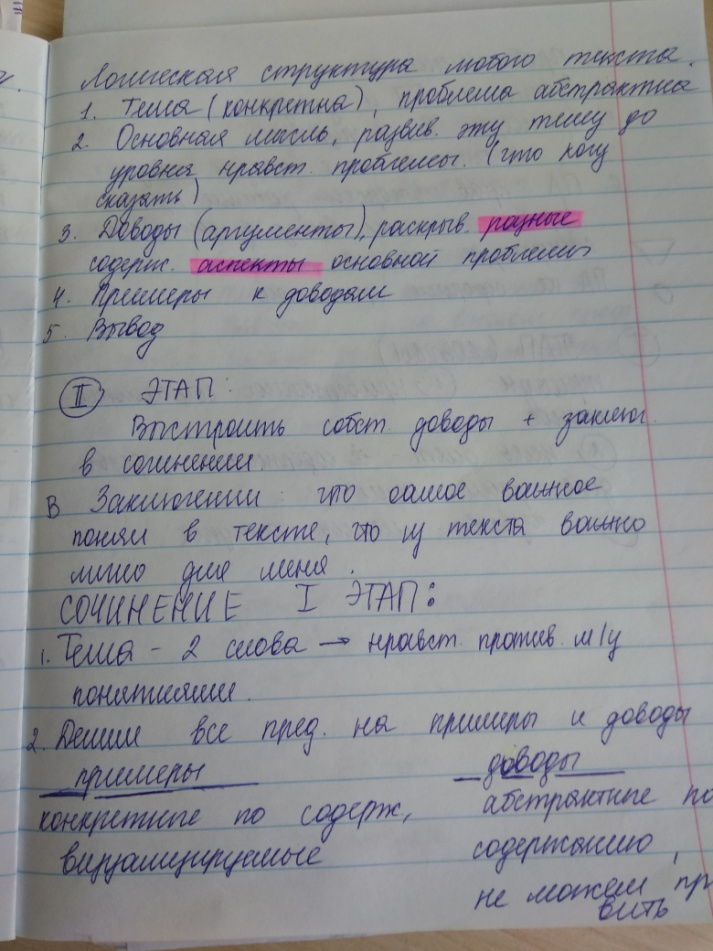 Логическая структура любого текста.
1. Тема (конкретна), проблема абстрактна
2. Основная мысль, развив. эту тему до
уровня нравст. проблемы. (что хочу
сказать)
3. Доводы (аргументы), раскрыв. разные
содерж. аспекты основной проблемы
4. Примеры к доводам
5. Вывод
II ЭТАП:
Выстроить собст доводы + заключ.
в сочинении
В Заключении: что самое важное
поняли в тексте, что из текста важно
лично для меня.
СОЧИНЕНИЕ I ЭТАП:
1. Тема - 2 слова → нравст. против. м/у
понятиями.
2. Делим все пред. на примеры и доводы
примеры доводы
конкретные по содерж, абстрактные по
визуализируемые содержанию,
не можем пр
вить